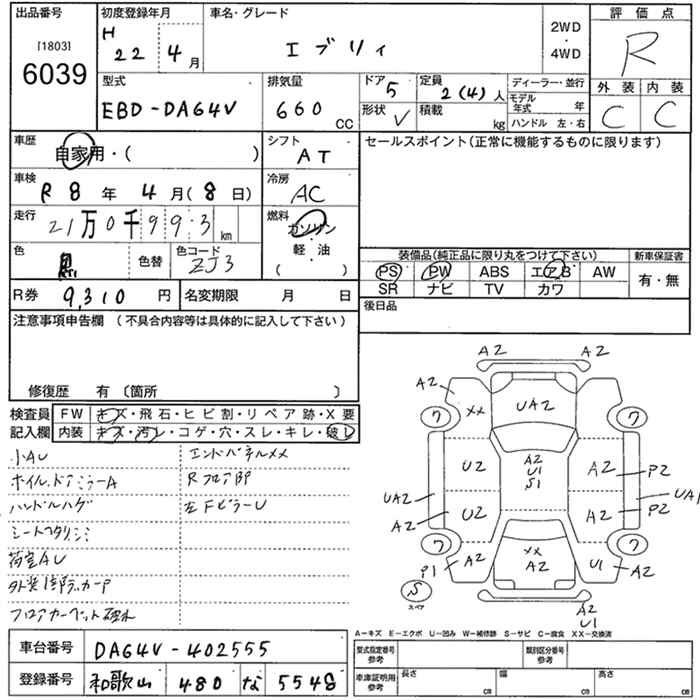 出品番号
[1803]
6039
初度登録年月
H 22 4月
車名・グレード
エブリィ
2WD
・
4WD
評価点
R
外装 内装
C C
型式
EBD-DA64V
排気量
660 CC
ドア 5
形状 V
定員 2(4)人
積載 kg
ディーラー・並行
モデル年式 年
ハンドル 左・右
車歴
自家用・( )
シフト
AT
車検
R 8年 4月(8日)
冷房
AC
走行
21万0千993 km
燃料
ガソリン
・
軽・油
( )
色
色替
色コード
ZJ3
R券 9,310円
名変期限 月 日
セールスポイント(正常に機能するものに限ります)
装備品(純正品に限り丸をつけて下さい)
PS PW ABS エアB AW
SR ナビ TV カワ
新車保証書
有・無
後日品
注意事項申告欄 (不具合内容等は具体的に記入して下さい)
修復歴 有 〔箇所 〕
検査員記入欄
FW キズ・飛石・ヒビ割・リペア跡・X要
内装 キズ・汚レ・コゲ・穴・スレ・キレ・破レ
小AU
ホイル、ドアミラーA
ハンドルハゲ
荷室AU
エンドパネルXX
Rフロア部
左FピラーU
A2 A2
A2 XX
UA2
ワ ワ
U2
A2
U1
S1
A2 P2
UA2
A2
U2
A2 P2
UA1
ワ ワ
P1 A2
XX
A2
U1 A2
S
スペア
A2
U1
A-キズ E-エクボ U-凹み W-補修跡 S-サビ C-腐食 XX-交換済
車台番号 DA64V-402555
登録番号 和歌山 480 な 5548
型式指定番号
参考
類別区分番号
参考
車庫証明用
参考
長さ cm
幅 cm
高さ cm